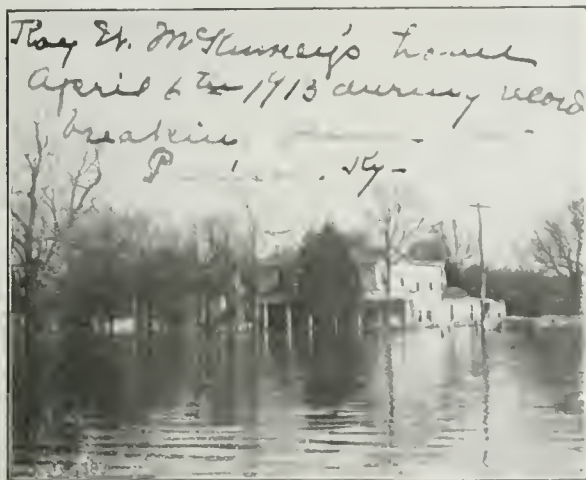 Roy W. McKinney's home
April 6th 1913 during record
breakin
P Ky-